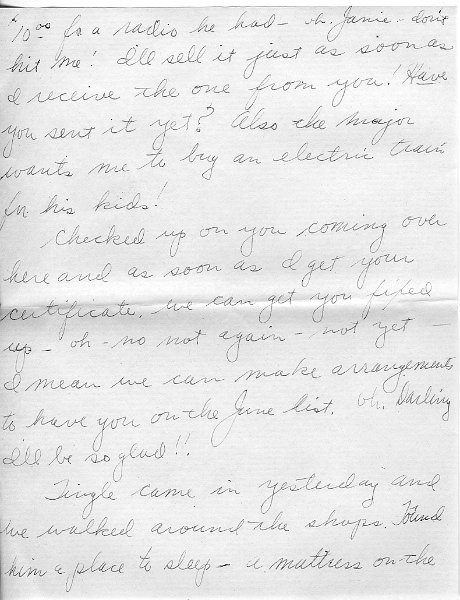 $10.00 for a radio he had - oh. Janie - don't
hit me! I'll sell it just as soon as
I receive the one from you! Have
you sent it yet? Also the major
wants me to buy an electric train
for his kids!
Checked up on you coming over
here and as soon as I get your
certificate, we can get you fixed
up - oh - no not again - not yet -
I mean we can make arrangements
to have you on the June list. Oh. Darling
I'll be so glad!!
Tingle came in yesterday and
we walked around the shops. Found
him a place to sleep - a mattress on the